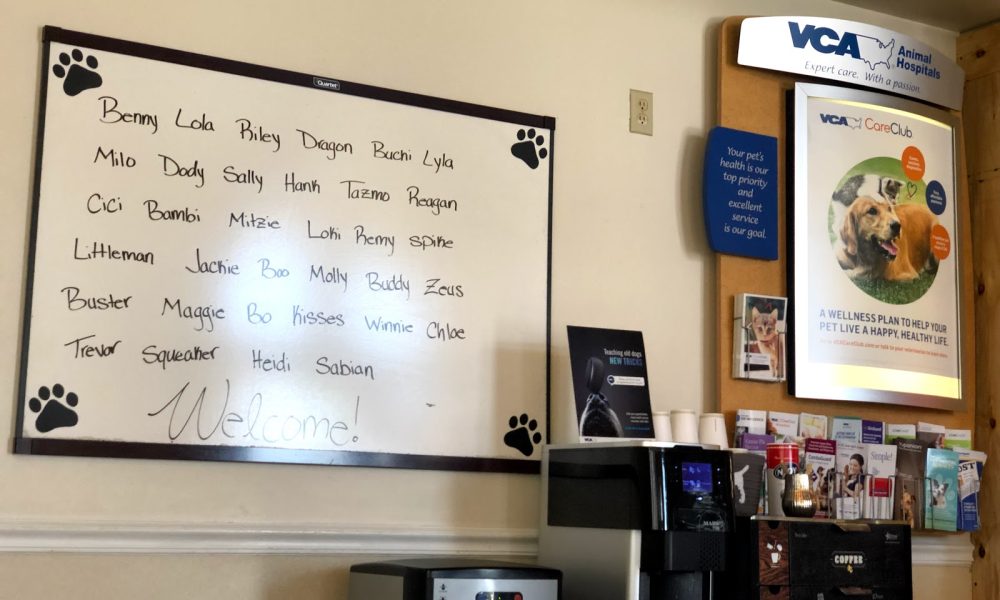 Quartet
Benny Lola Riley Dragon Buchi Lyla
Milo Dody Sally Hank Tazmo Reagan
Cici Bambi Mitzie Loki Remy spike
Littleman Jackie Boo Molly Buddy Zeus
Buster Maggie Bo Kisses Winnie Chloe
Trevor Squeaker Heidi Sabian
Welcome!
VCA Animal
Hospitals
Expert care. With a passion.
Your pet's
health is our
top priority
and
excellent
service
is our goal.
VCA CareClub
A WELLNESS PLAN TO HELP YOUR
PET LIVE A HAPPY, HEALTHY LIFE.
Teaching old dogs
NEW TRICKS
Simple!
COFFEE